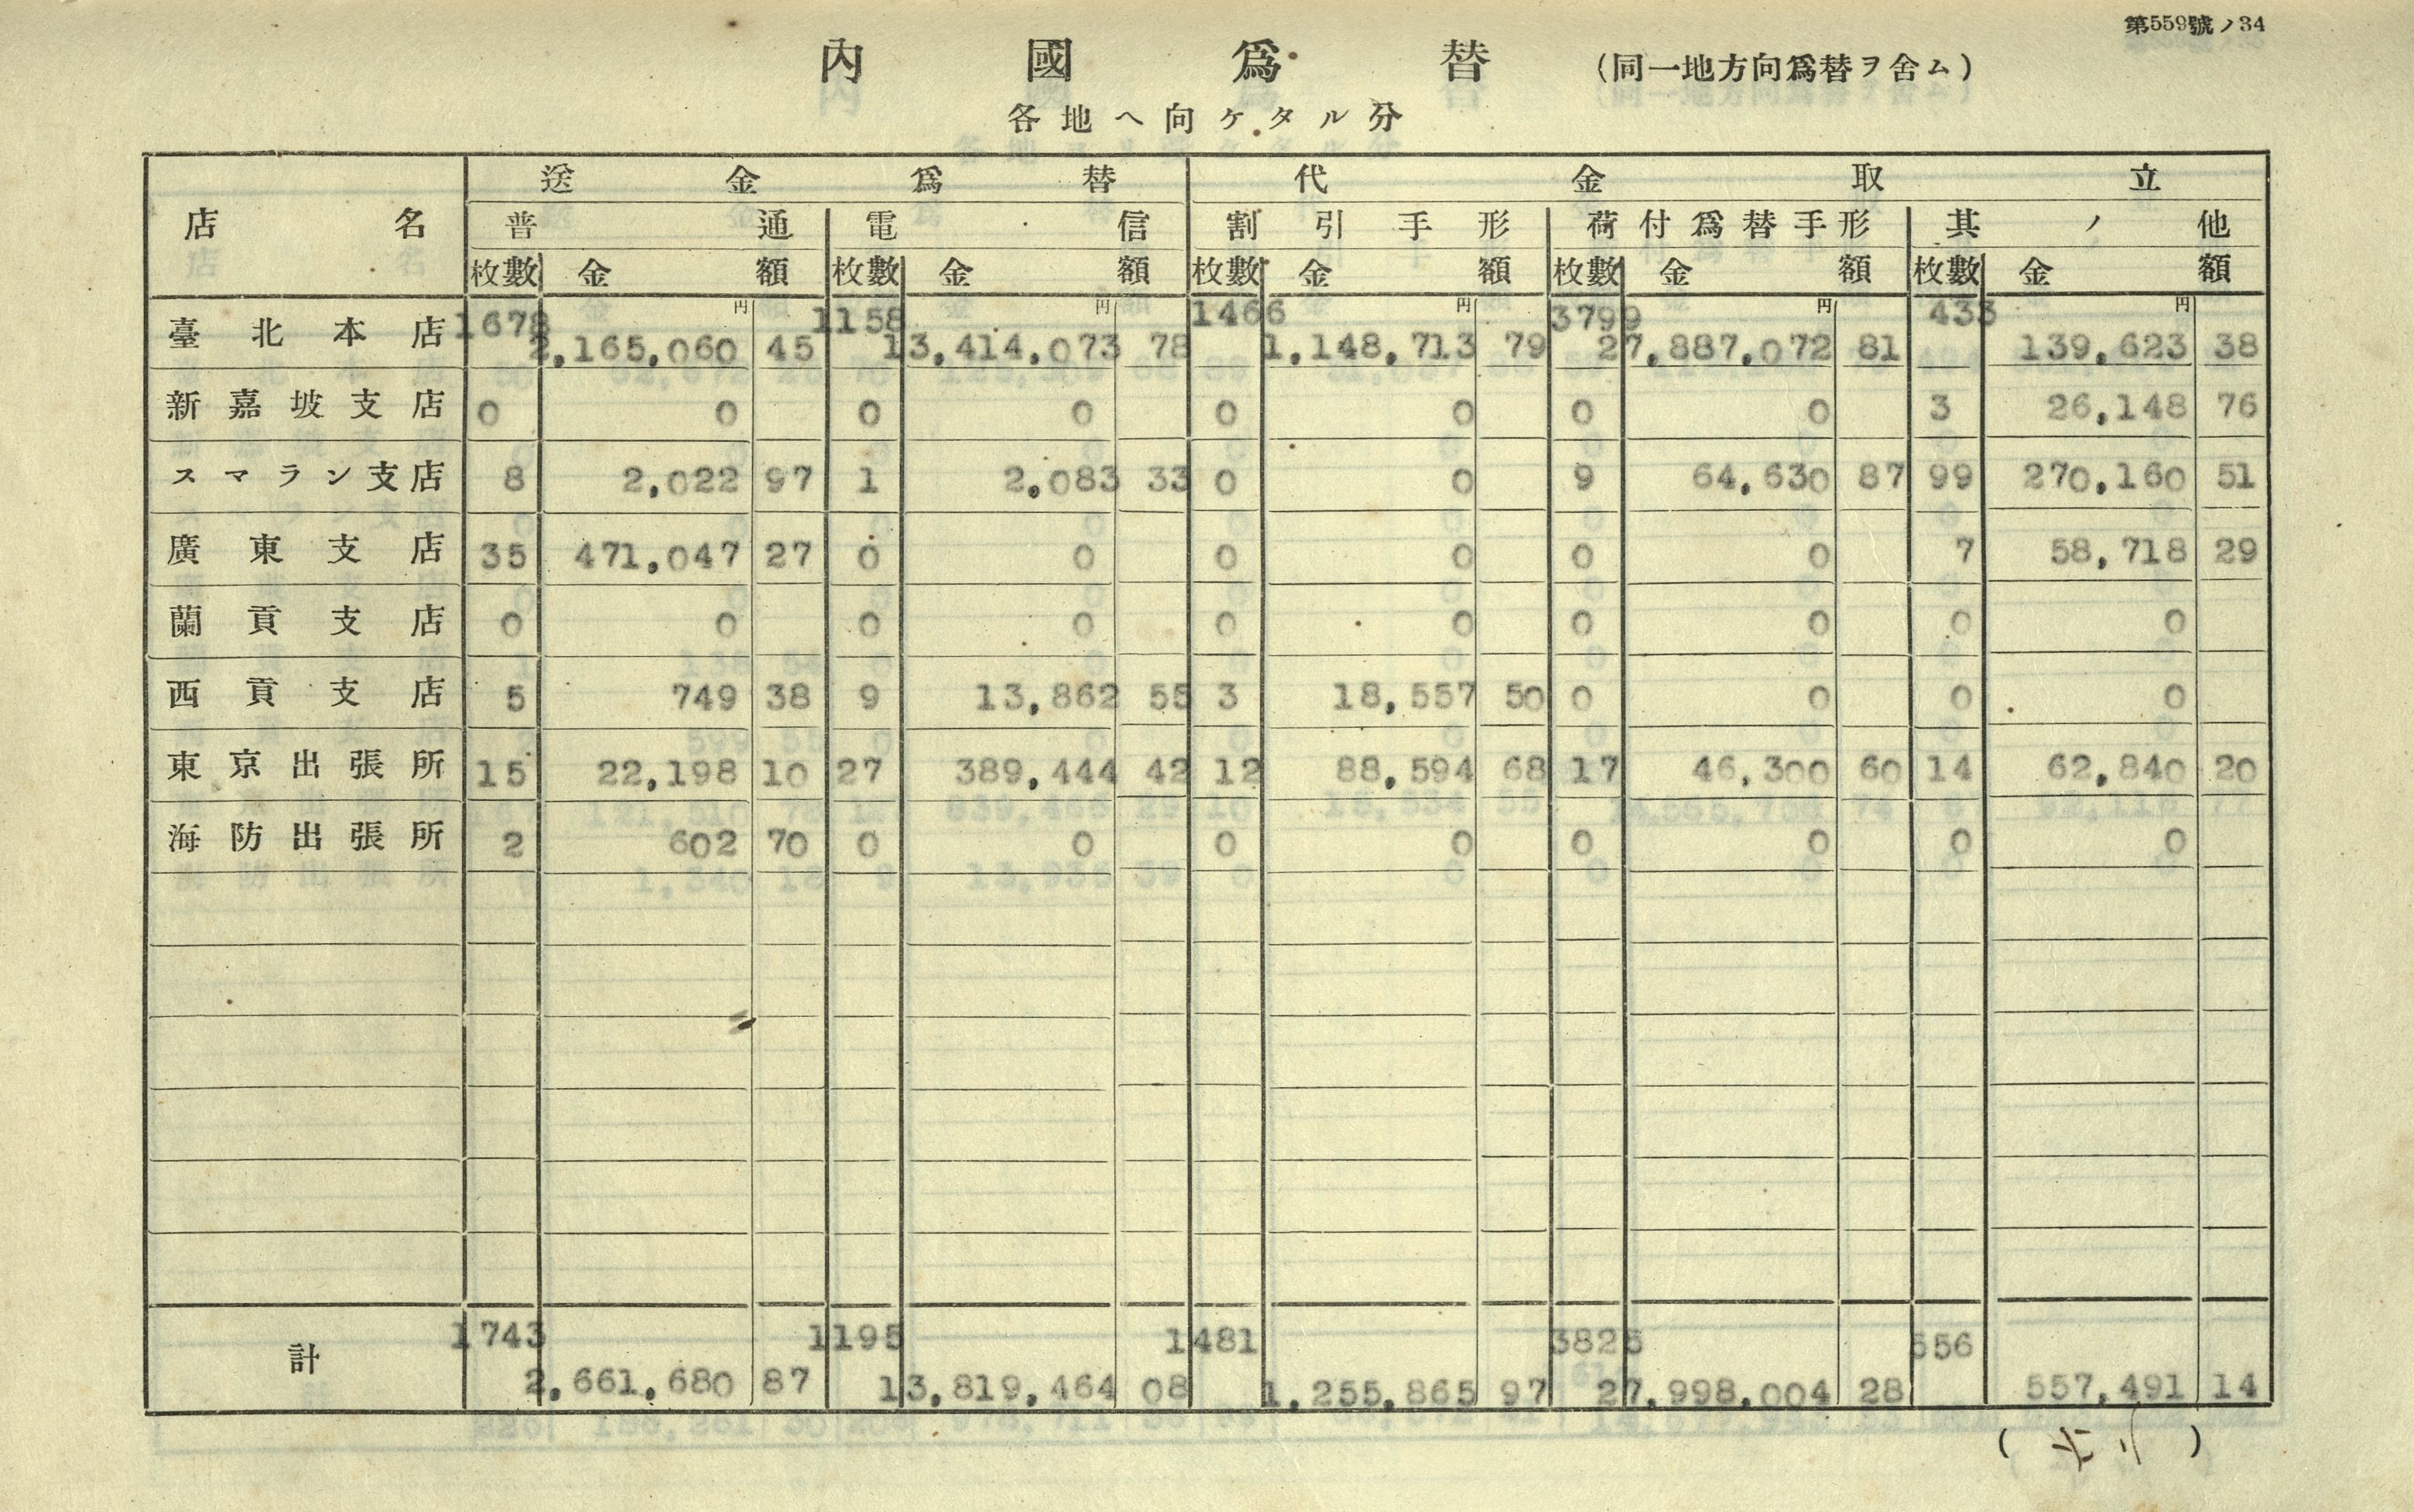 第559號ノ34
內國爲替 (同一地方向爲替ヲ含ム)
各地ヘ向ケタル分
店名 送金爲替 代金取立
普通 電信 割引手形 荷付爲替手形 其ノ他
枚數 金額 枚數 金額 枚數 金額 枚數 金額 枚數 金額
円 円 円 円 円
臺北本店 1678 2,165,060 45 1158 13,414,073 78 1466 1,148,713 79 3799 27,887,072 81 433 139,623 38
新嘉坡支店 0 0 0 0 0 0 0 0 3 26,148 76
スマラン支店 8 2,022 97 1 2,083 33 0 0 9 64,630 87 99 270,160 51
廣東支店 35 471,047 27 0 0 0 0 0 0 7 58,718 29
蘭貢支店 0 0 0 0 0 0 0 0 0 0
西貢支店 5 749 38 9 13,862 55 3 18,557 50 0 0 0 0
東京出張所 15 22,198 10 27 389,444 42 12 88,594 68 17 46,300 60 14 62,840 20
海防出張所 2 602 70 0 0 0 0 0 0 0 0
計 1743 2,661,680 87 1195 13,819,464 08 1481 1,255,865 97 3825 27,998,004 28 556 557,491 14